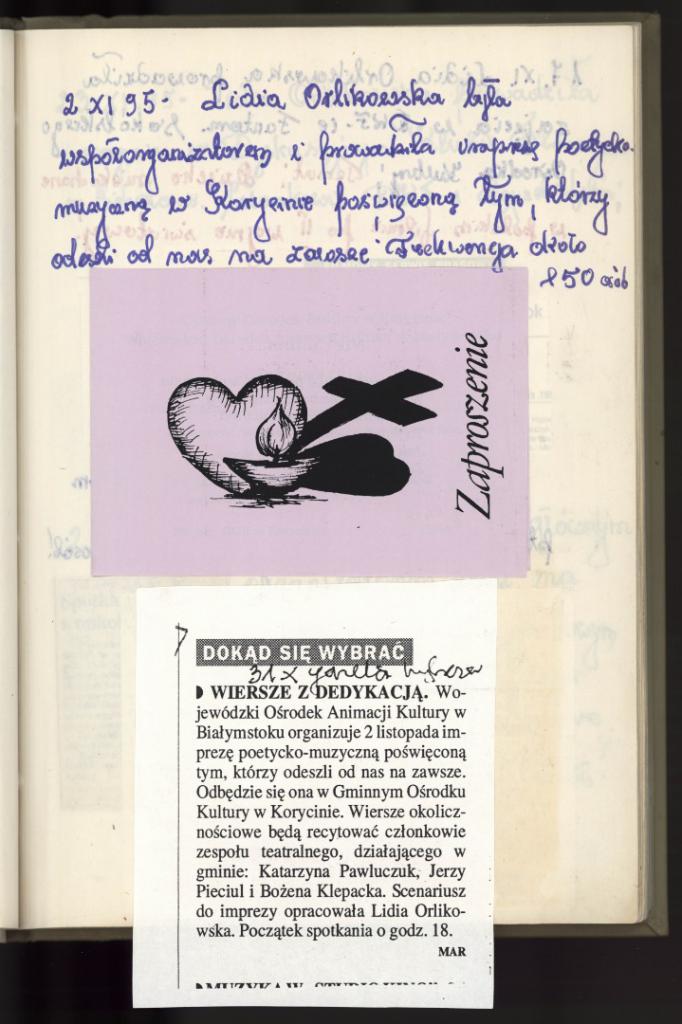 2 XI 95 - Lidia Orlikowska była
współorganizatorem i prowadziła imprezę poetycko-
muzyczną w Korycinie poświęconą tym, którzy
odeszli od nas na zawsze. Frekwencja około
150 osób
Zaproszenie
DOKĄD SIĘ WYBRAĆ
31 X
WIERSZE Z DEDYKACJĄ. Wo-
jewódzki Ośrodek Animacji Kultury w
Białymstoku organizuje 2 listopada im-
prezę poetycko-muzyczną poświęconą
tym, którzy odeszli od nas na zawsze.
Odbędzie się ona w Gminnym Ośrodku
Kultury w Korycinie. Wiersze okolicz-
nościowe będą recytować członkowie
zespołu teatralnego, działającego w
gminie: Katarzyna Pawluczuk, Jerzy
Pieciul i Bożena Klepacka. Scenariusz
do imprezy opracowała Lidia Orliko-
wska. Początek spotkania o godz. 18.
MAR